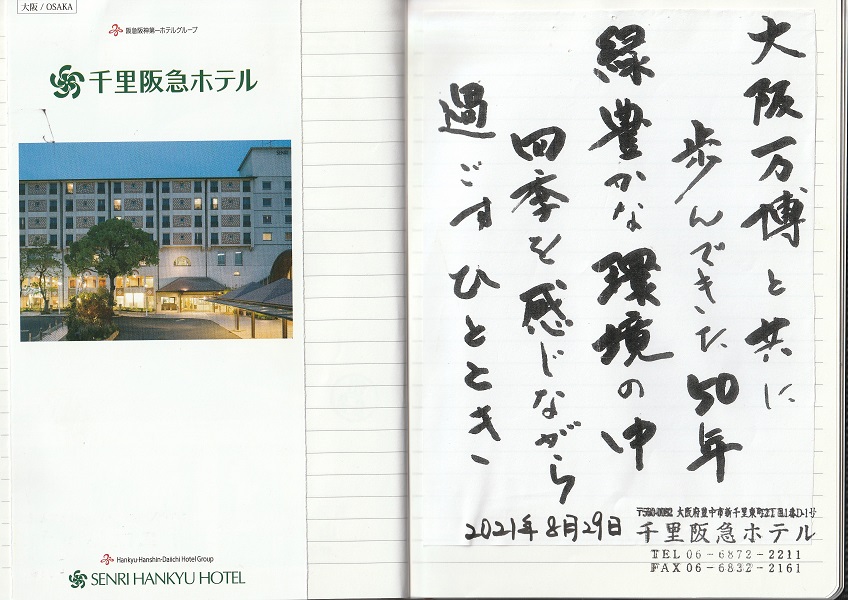 大阪 / OSAKA
阪急阪神第一ホテルグループ
千里阪急ホテル
Hankyu-Hanshin-Daiichi Hotel Group
SENRI HANKYU HOTEL
大阪万博と共に
歩んできた50年
緑豊かな環境の中
四季を感じながら
過ごすひととき
2021年8月29日
〒560-0082 大阪府豊中市新千里東町2丁目1番D-1号
千里阪急ホテル
TEL 06-6872-2211
FAX 06-6832-2161